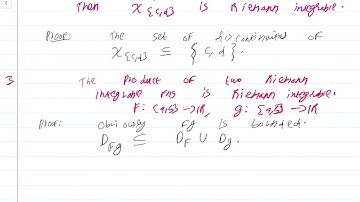 Then χ_{[c,d]} is Riemann integrable.
Proof: The set of discontinuities of
χ_{[c,d]} ⊆ {c, d}.
3 The product of two Riemann
integrable fns is Riemann integrable.
F: [a,b] → ℝ, g: [a,b] → ℝ
Proof: obviously Fg is bounded.
D_{Fg} ⊆ D_F ∪ D_g.